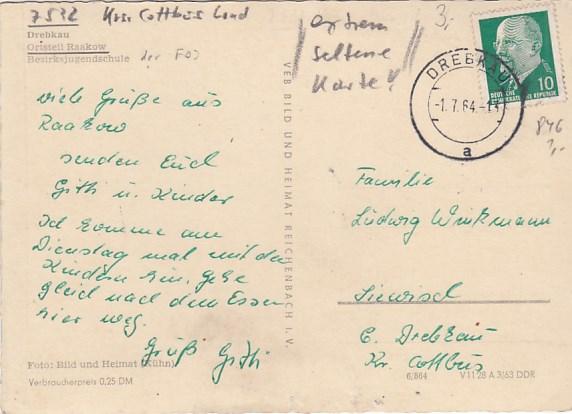 7532 Krs. Cottbus Land
Drebkau
Ortsteil Raakow
Bezirksjugendschule der FDJ
extrem
seltene
Karte!
3,-
DREBKAU
-1.7.64.-
a
DEUTSCHE
DEMOKRATISCHE REPUBLIK
10
846
3,-
Viele Grüße aus
Raakow
senden Euch
Gitti u. Kinder
Ich komme am
Dienstag mal mit den
Kindern hin. Gehe
gleich nach dem Essen
hier weg.
Gruß Gitti
VEB BILD UND HEIMAT REICHENBACH I. V.
Familie
Ludwig Winkmann
Siewisch
b. Drebkau
Kr. Cottbus
Foto: Bild und Heimat (Kühn)
Verbraucherpreis 0,25 DM
6/864 V 11 28 A 3/63 DDR